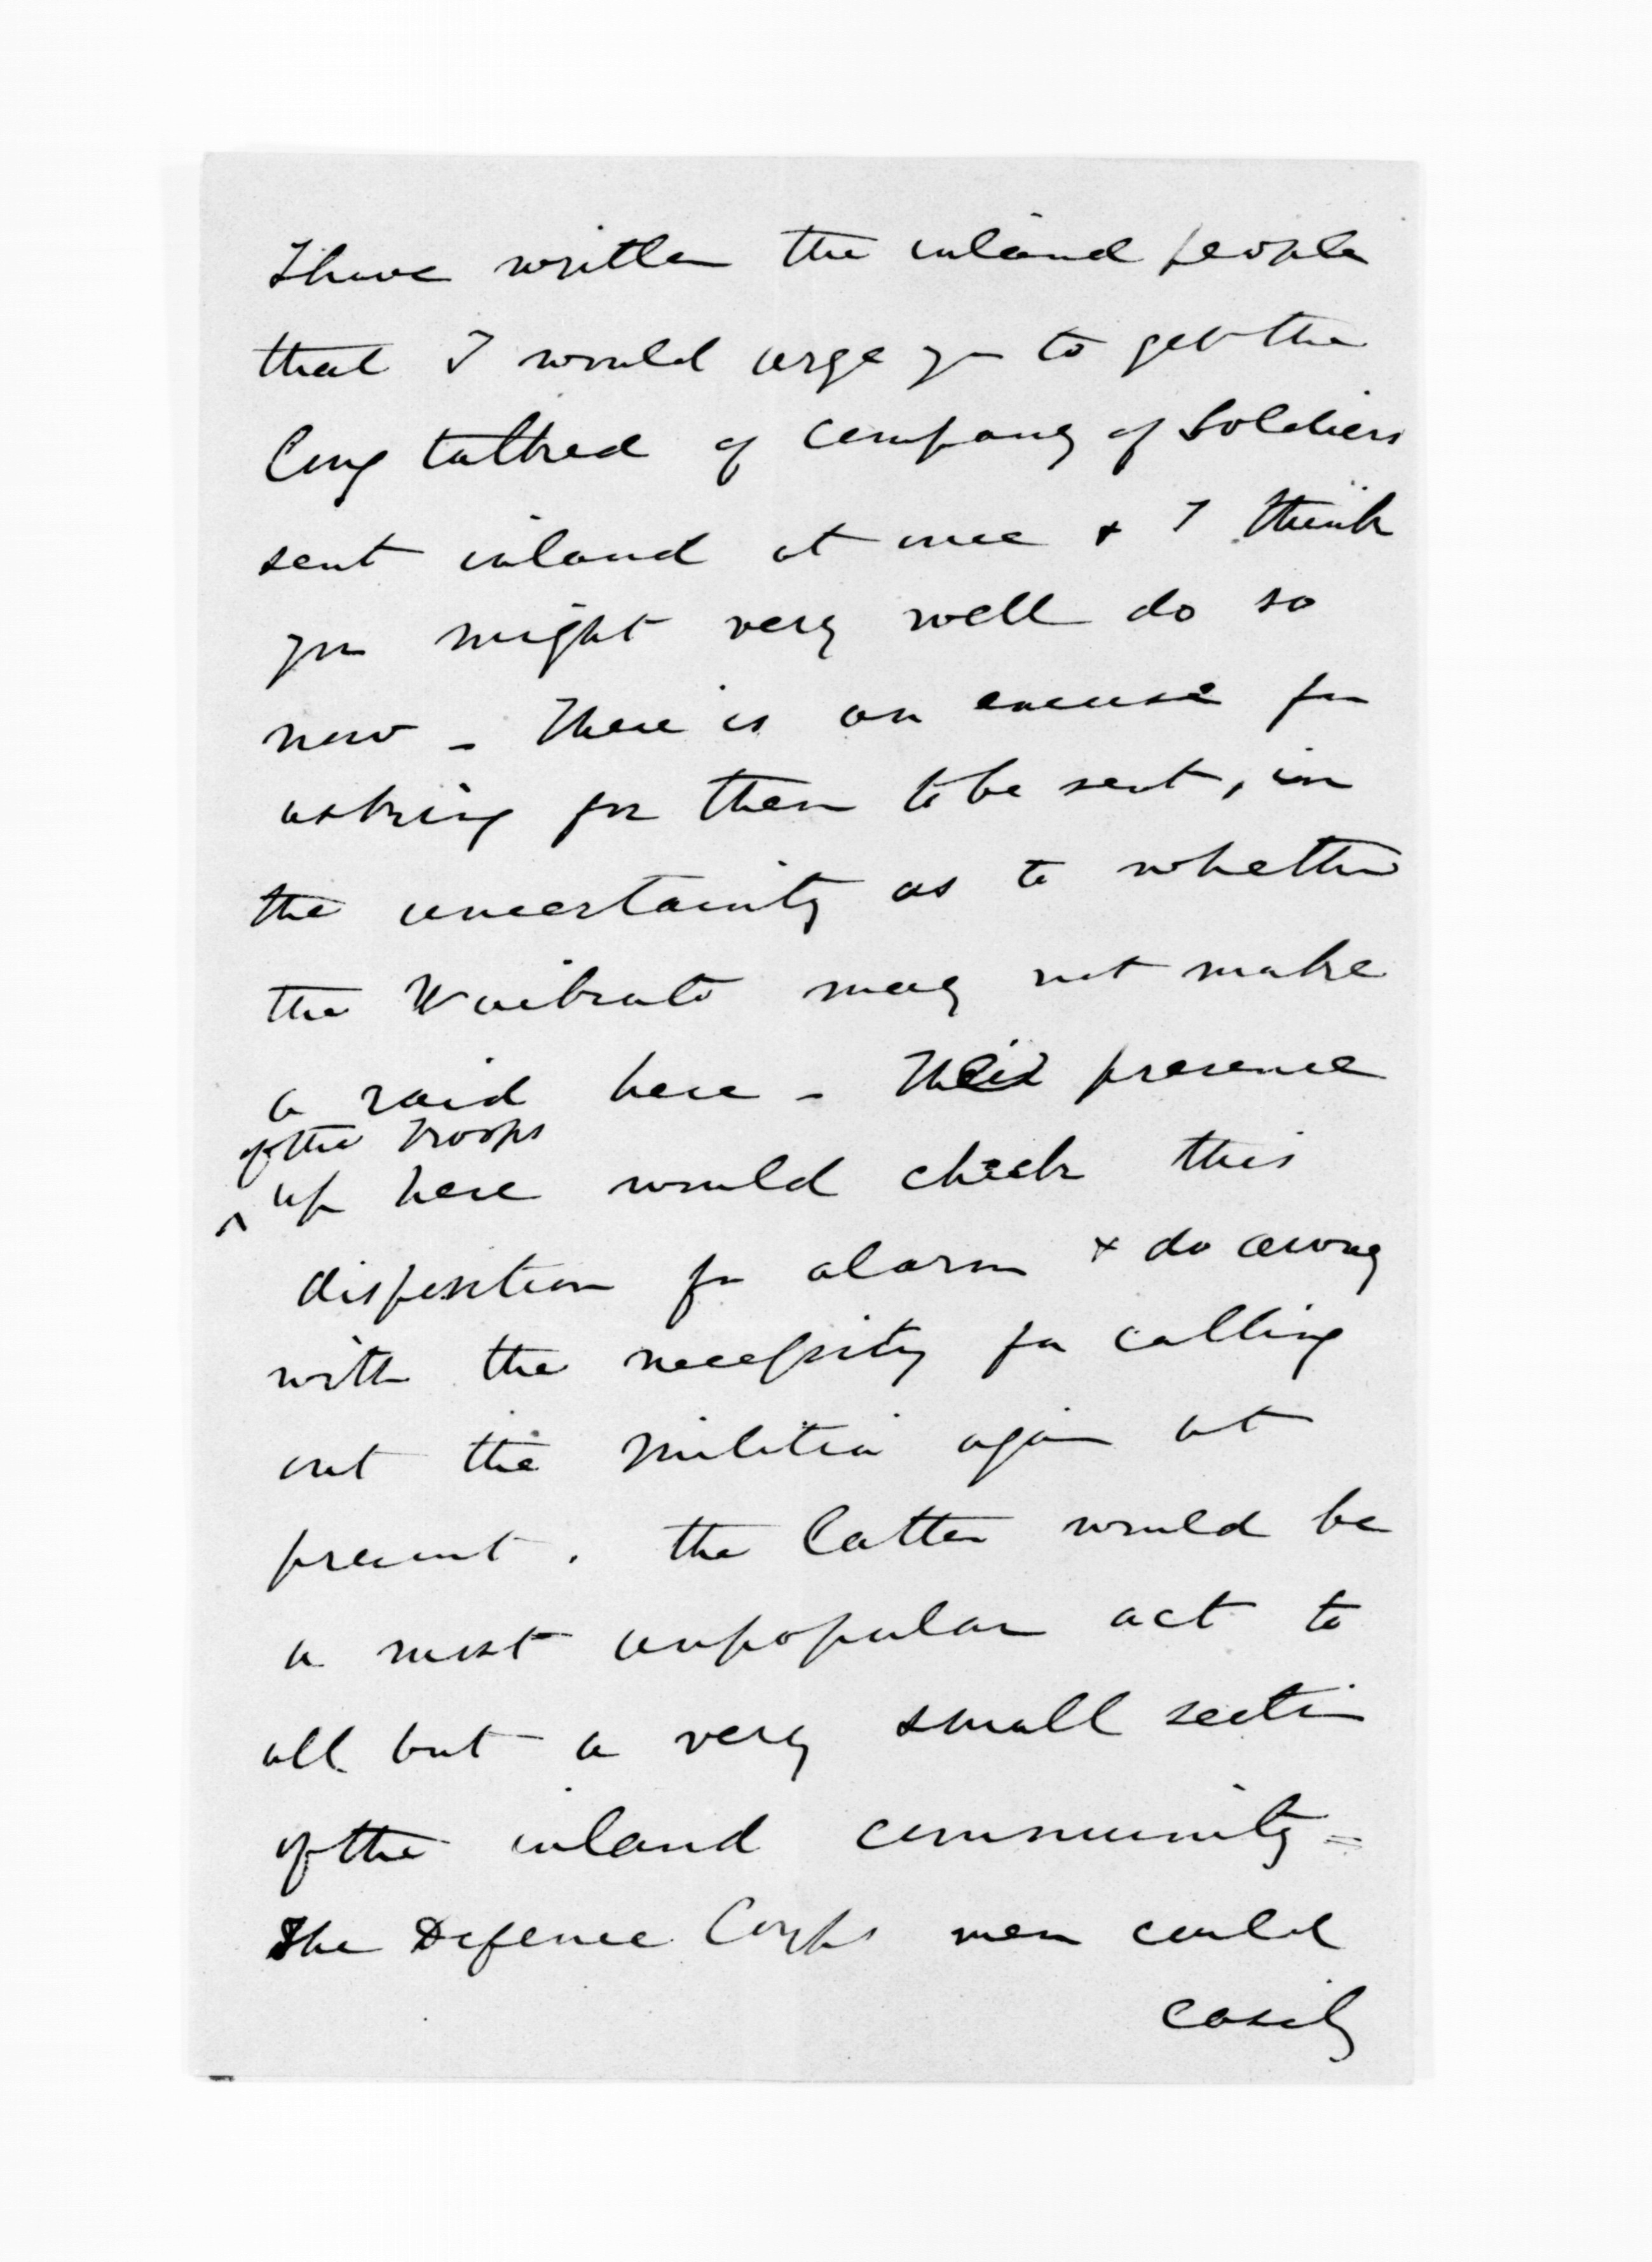 I have written the inland people
that I would urge you to get the
long talked of company of Soldiers
sent inland at once & I think
you might very well do so
now _ There is an excuse for
asking for them to be sent, in
the uncertainty as to whether
the Waikato may not make
a raid here _ The presence
of the troops
^ up here would check this
disposition for alarm & do away
with the necessity for calling
out the Militia again at
present. The latter would be
a most unpopular act to
all but a very small section
of the inland community =
The Defence Corps men could
easily